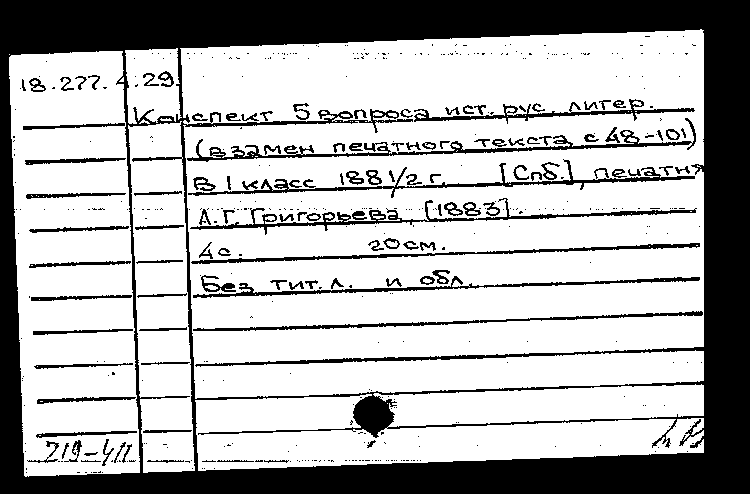 18.277.4.29.
Конспект 5 вопроса ист. рус. литер.
(взамен печатного текста с 48-101)
В I класс 1881/2 г. [Спб.], печатня
А.Г. Григорьева, [1883].
4с. 20см.
Без тит. л. и обл.